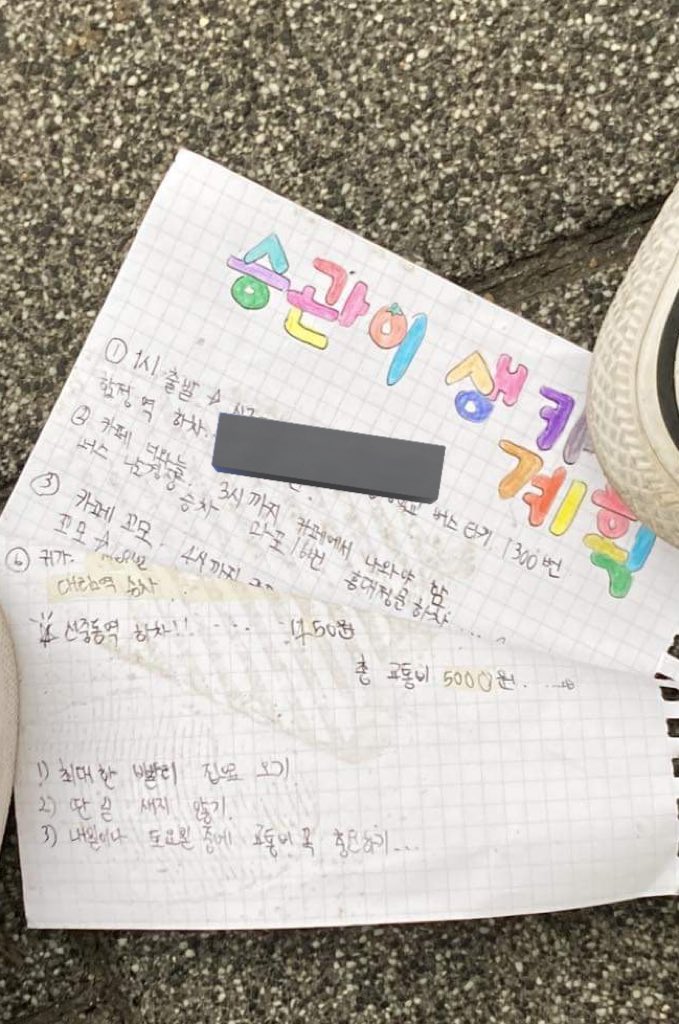 승관이 생카
계획
① 1시 출발 →
합정역 하차.
② 카페 버스 타기 1300번
버스 3시까지 카페에서 나와야 함
③ 카페 꼬모. 승차 마포 16번 홍대정문 하차
꼬모 → 4시까지
⑥ 귀가.
대림역 승차
신중동역 하차!! 1450원
총 교통비 5000원.
1) 최대한 빨리 집으로 오기
2) 딴 길 새지 않기.
3) 내일이나 토요일 중에 교통비 꼭 충전하기...